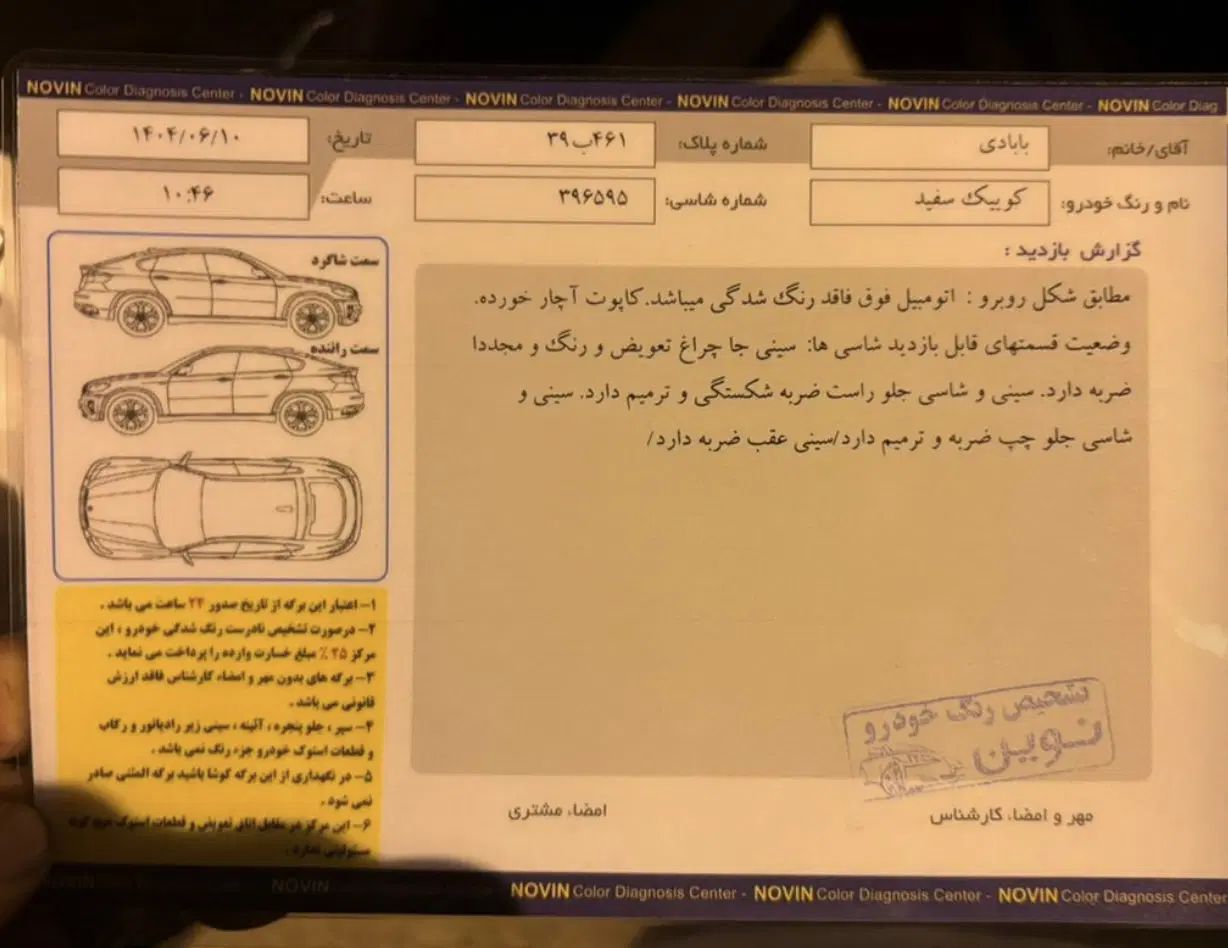 NOVIN Color Diagnosis Center - NOVIN Color Diagnosis Center - NOVIN Color Diagnosis Center - NOVIN Color Diagnosis Center - NOVIN Color Diagnosis Center - NOVIN Color Diag
آقای/خانم: بابادی
شماره پلاک: ۴۶۱ب۳۹
تاریخ: ۱۴۰۴/۰۶/۱۰
نام و رنگ خودرو: کوییک سفید
شماره شاسی: ۳۹۶۵۹۵
ساعت: ۱۰:۴۶
گزارش بازدید :
مطابق شکل روبرو : اتومبیل فوق فاقد رنگ شدگی میباشد.کاپوت آچار خورده.
وضعیت قسمتهای قابل بازدید شاسی ها: سینی جا چراغ تعویض و رنگ و مجددا
ضربه دارد. سینی و شاسی جلو راست ضربه شکستگی و ترمیم دارد. سینی و
شاسی جلو چپ ضربه و ترمیم دارد/سینی عقب ضربه دارد/
سمت شاگرد
سمت راننده
۱- اعتبار این برگه از تاریخ صدور ۲۴ ساعت می باشد .
۲- درصورت تشخیص نادرست رنگ شدگی خودرو ، این
مرکز ۲۵ ٪ مبلغ خسارت وارده را پرداخت می نماید .
۳- برگه های بدون مهر و امضاء کارشناس فاقد ارزش
قانونی می باشد .
۴- سپر ، جلو پنجره ، آئینه ، سینی زیر رادیاتور و رکاب
و قطعات استوک خودرو جزء رنگ نمی باشد .
۵- در نگهداری از این برگه کوشا باشید برگه المثنی صادر
نمی شود .
۶- این مرکز در مقابل اتاق تعویض و قطعات استوک
مسئولیتی ندارد .
تشخیص رنگ خودرو
نوین
مهر و امضاء کارشناس
امضاء مشتری
NOVIN
NOVIN Color Diagnosis Center - NOVIN Color Diagnosis Center - NOVIN Color Diagnosis Center